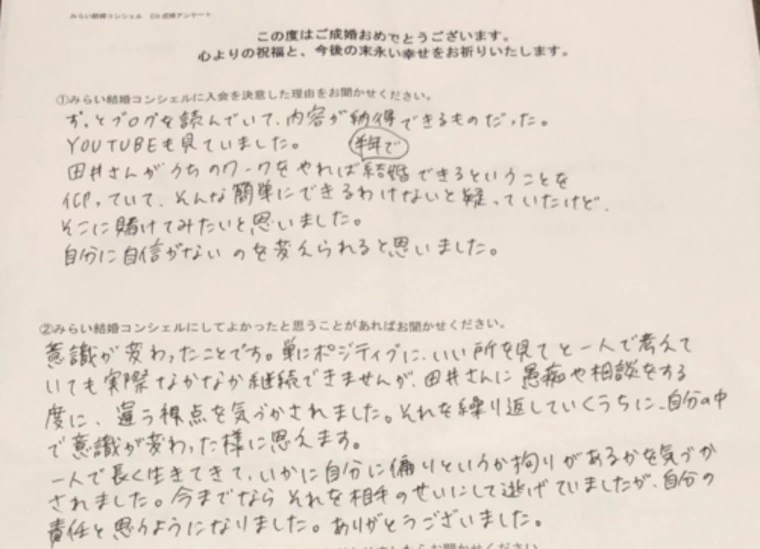 みらい結婚コンシェル ご成婚アンケート
この度はご成婚おめでとうございます。
心よりの祝福と、今後の末永い幸せをお祈りいたします。
①みらい結婚コンシェルに入会を決意した理由をお聞かせください。
ずっとブログを読んでいて、内容が納得できるものだった。
YOUTUBEも見ていました。 半年で
田井さんがうちのワークをやれば結婚できるということを
仰っていて、そんな簡単にできるわけないと疑っていたけど、
そこに賭けてみたいと思いました。
自分に自信がないのを変えられると思いました。
②みらい結婚コンシェルにしてよかったと思うことがあればお聞かせください。
意識が変わったことです。単にポジティブに、いい所を見てと一人で考えて
いても実際なかなか継続できませんが、田井さんに愚痴や相談をする
度に、違う視点を気づかされました。それを繰り返していくうちに、自分の中
で意識が変わった様に思えます。
一人で長く生きてきて、いかに自分に偏りというか拘りがあるかを気づか
されました。今までなら それを相手のせいにして逃げていましたが、自分の
責任と思うようになりました。ありがとうございました。